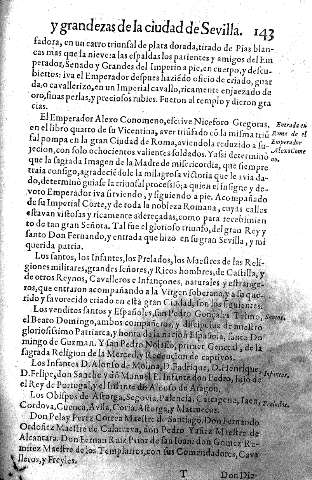 y grandezas de la ciudad de Sevilla. 143
sadora, en un carro triunfal de plata dorada, tirado de Pias blan-
cas mas que la nieve a las espaldas los parientes y amigos del Em
perador, Senado y Grandes del Imperio a pie, en cuerpo, y descu-
biertos: iva el Emperador despues haziẽdo oficio de criado, guar
da, o cavallerizo, en un Imperial cavallo, ricamente enjaezado de
oro, finas perlas, y preciosos rubies. Fueron al templo y dieron gra
cias.
El Emperador Alexo Conomeno, escrive Niceforo Gregoras,
en el libro quarto de su
pompa en la gran Ciudad de Roma, aviendola reduzido a su
jecion, con solo ochocientos valientes soldados. Y assi determino
que la sagrada Imagen de la Madre de misericordia, que siempre
traia consigo, agradeciẽdole la milagrosa victoria que le avia da-
do, determinò guiasse la triunfal processiõ; a quien el insigne y de-
voto Emperador iva sirviendo, y siguiendo a pie. Acompañado
de su Imperial Corte, y de toda la nobleza Romana, cuyas calles
estavan vistosas y ricamente adereçadas, como para recebimien
to de tan gran Señora. Tal fue el glorioso triunfo, del gran Rey y
santo Don Fernando, y entrada que hizo en su gran Sevilla, y mi
querida patria.
Los santos, los Infantes, los Prelados, los Maestres de las Reli-
giones militares, grandes señores, y Ricos hombres, de Castilla, y
de otros Reynos, Cavalleros e Infançones, naturales y estrange-
ros, que entraron acompañando a la Virgen soberana, y a su que-
rido y favorecido criado en esta gran Ciudad, son los siguientes.
Los venditos santos y Españoles, san Pedro Gonçalez Telmo,
el Beato Domingo, ambos compañeros, y dicipulos de nuestro
gloriosissimo Patriarca, y honra de la nacion Española, santo Do-
mingo de Guzman. Y san Pedro Nolasco, primer General, de la
sagrada Religion de la Merced, y Redencion de captivos.
Los Infantes D. Alonso de Molina, D. Fadrique, D. Henrique,
D. Felipe, don Sancho y dõ Manuel El Infante don Pedro, hijo de
el Rey de Portugal, y el Infante de Alonso de Aragon.
Los Obispos de Astorga, Segovia, Palencia, Cartagena, Jaen,
Cordova, Cuenca, Avila, Coria, Astorga, y Marruecos.
Don Pelay Perez Correa Maestre de Santiago, Don Fernando
Ordoñez Maestre de Calatrava, don Pedro Yañez Maestre de
Alcantara. Don Fernan Ruiz Prior de san Iuan: don Gomez Ra-
mirez Maestre de los Templarios, con sus Comendadores, Cava
lleros, y Freyles.
T Don Die-
Entrada en
Roma de el
Emperador
Santos.
Infantes.
Prelados.